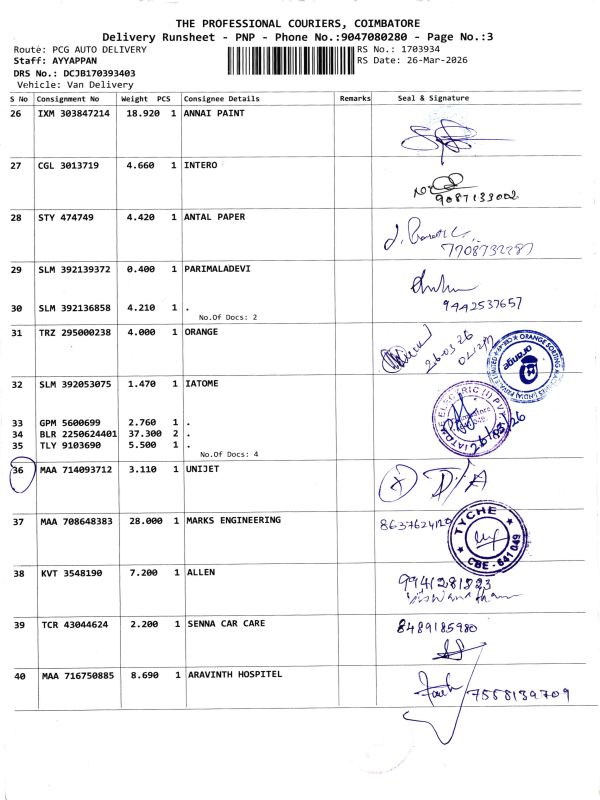 THE PROFESSIONAL COURIERS, COIMBATORE
Delivery Runsheet - PNP - Phone No.:9047080280 - Page No.:3
Route: PCG AUTO DELIVERY RS No.: 1703934
Staff: AYYAPPAN RS Date: 26-Mar-2026
DRS No.: DCJB170393403
Vehicle: Van Delivery
S No Consignment No Weight PCS Consignee Details Remarks Seal & Signature
26 IXM 303847214 18.920 1 ANNAI PAINT
27 CGL 3013719 4.660 1 INTERO
9087133002
28 STY 474749 4.420 1 ANTAL PAPER
7708732287
29 SLM 392139372 0.400 1 PARIMALADEVI
30 SLM 392136858 4.210 1 .
9442537657
No.Of Docs: 2
31 TRZ 295000238 4.000 1 ORANGE
26-03-26
orange
32 SLM 392053075 1.470 1 IATOME
26/03/26
33 GPM 5600699 2.760 1 .
34 BLR 2250624401 37.300 2 .
35 TLY 9103690 5.500 1 .
No.Of Docs: 4
36 MAA 714093712 3.110 1 UNIJET
X D/A
37 MAA 708648383 28.000 1 MARKS ENGINEERING
8637624120
TYCHE
CBE - 641 049
38 KVT 3548190 7.200 1 ALLEN
9941281823
39 TCR 43044624 2.200 1 SENNA CAR CARE
8489185980
40 MAA 716750885 8.690 1 ARAVINTH HOSPITEL
7558139709